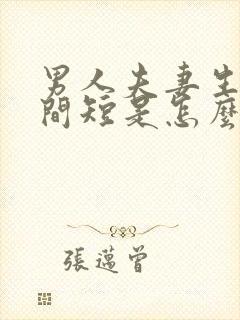 男人夫妻生
間短是怎麼
張邁曾